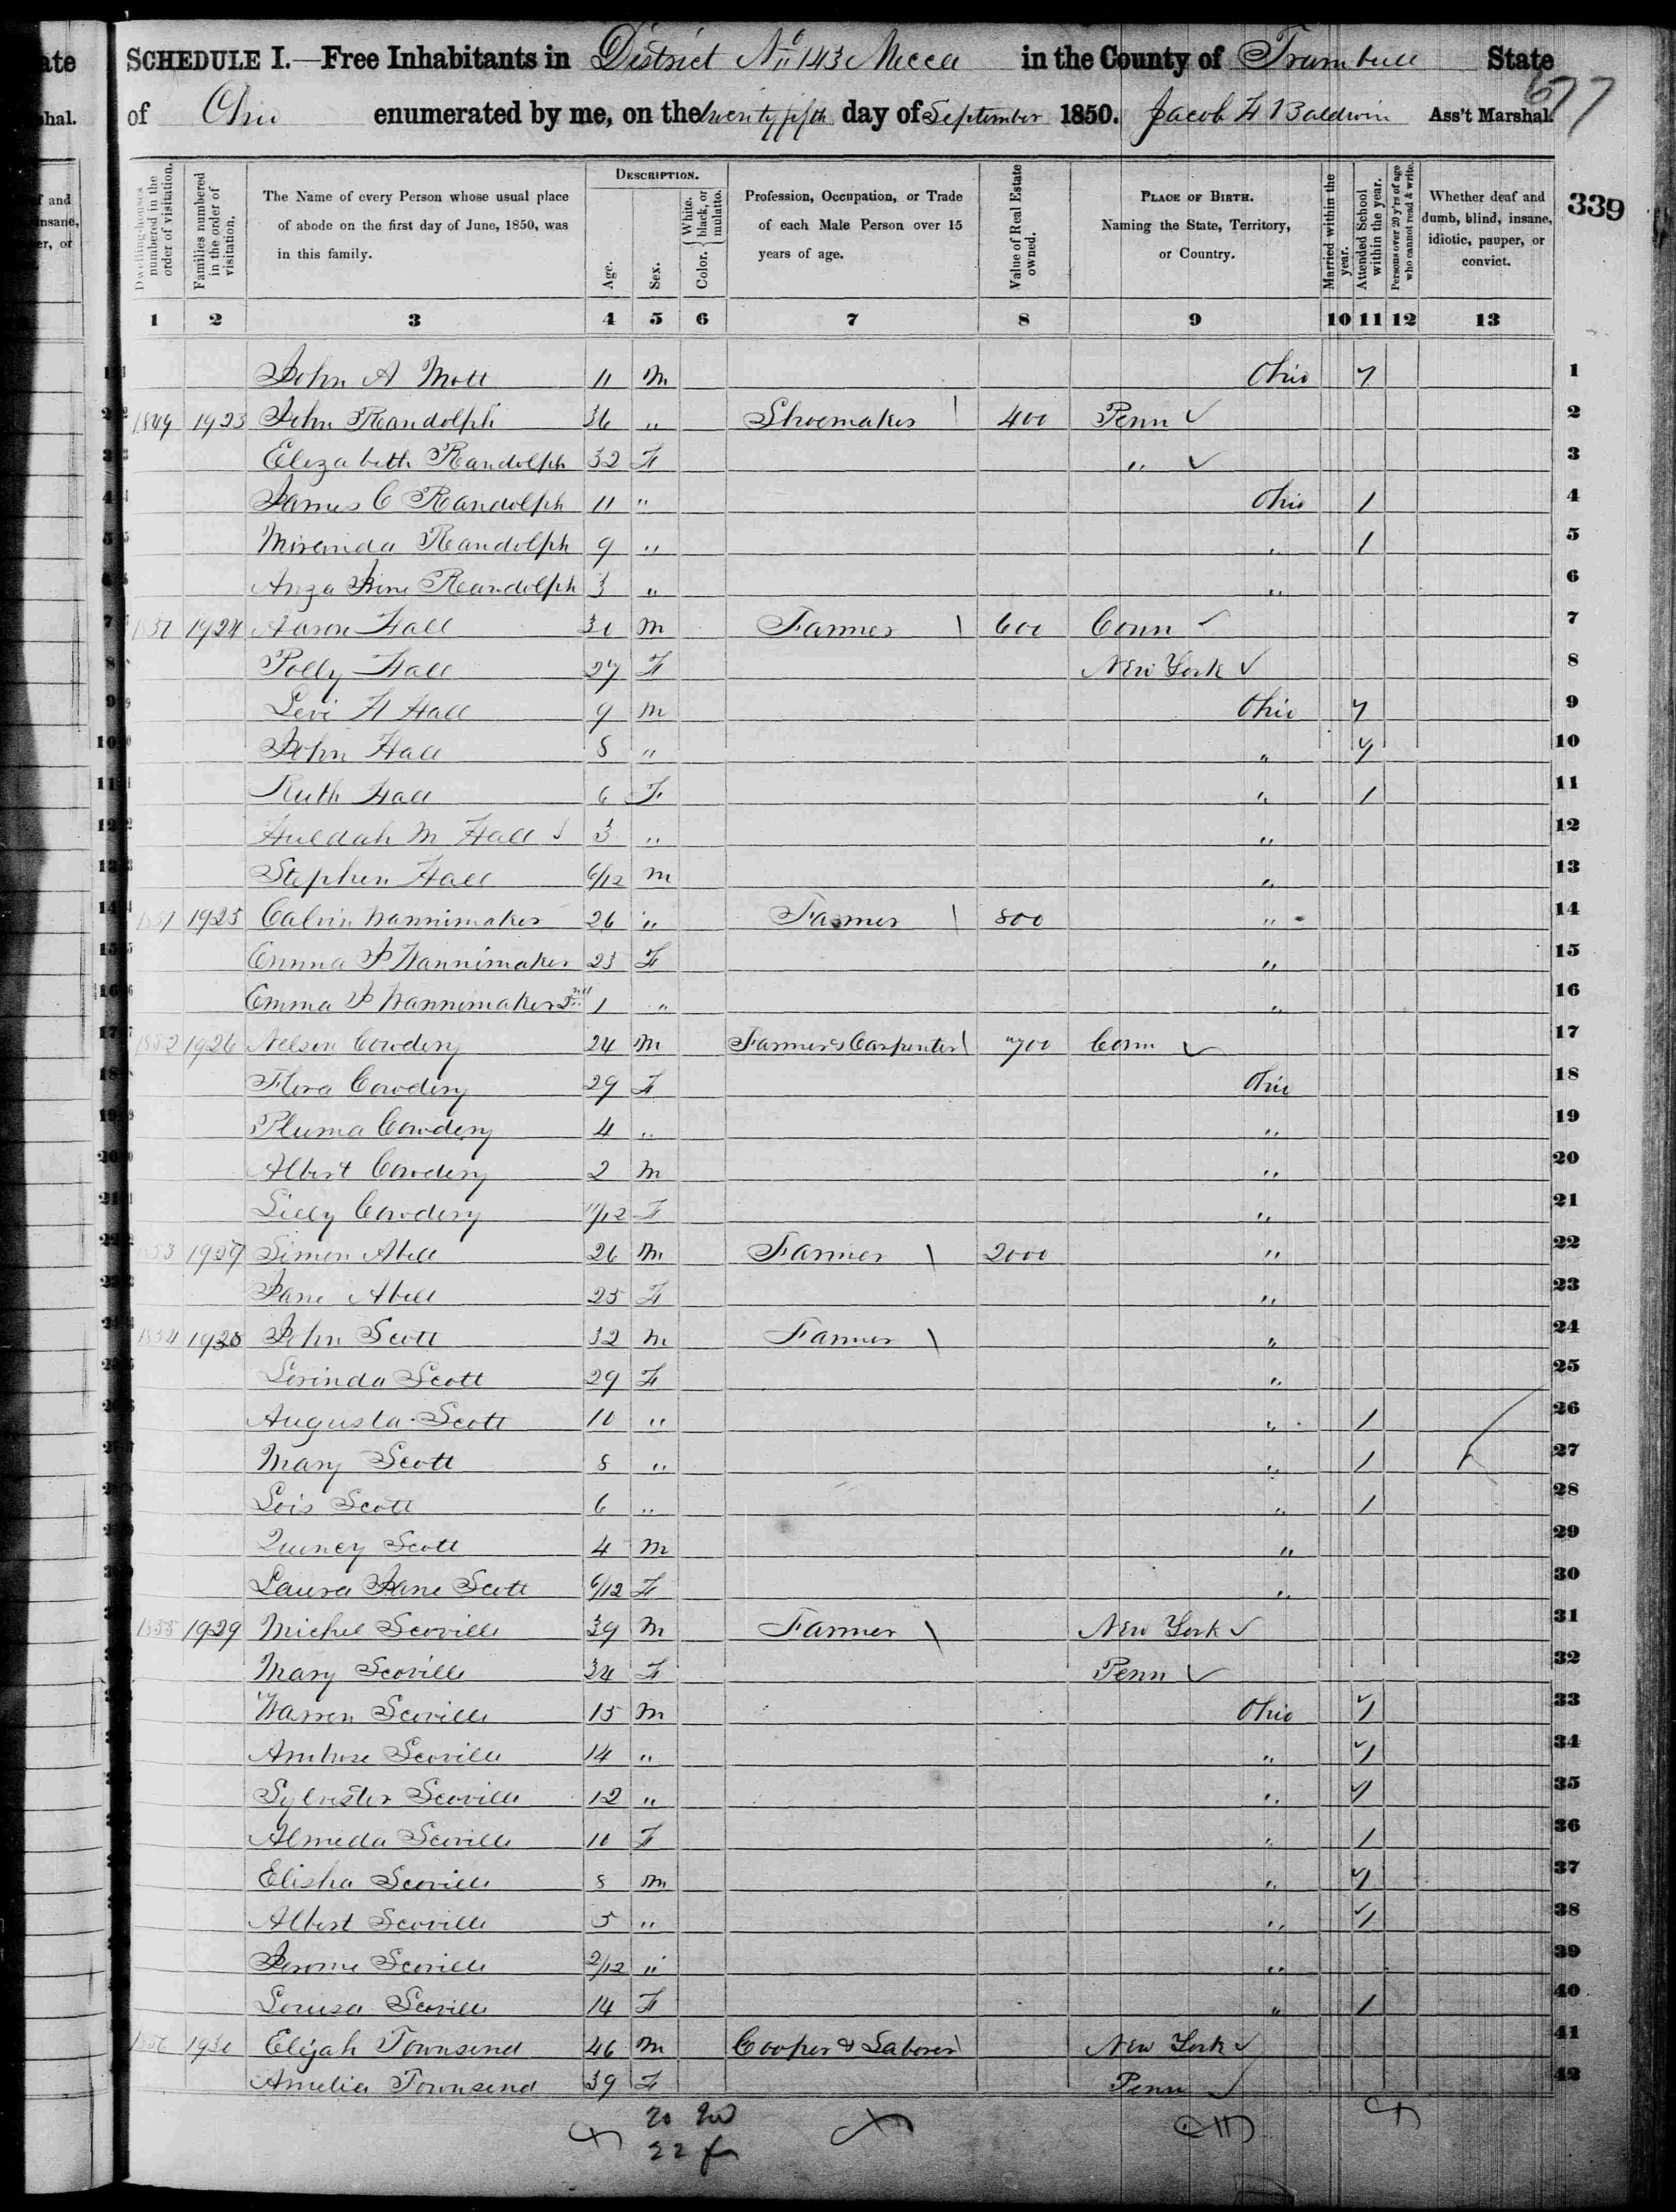 SCHEDULE I.—Free Inhabitants in District No 143 Mecca in the County of Trumbull State
of Ohio enumerated by me, on the twenty fifth day of September 1850. Jacob H Baldwin Ass't Marshal.
677
339
Dwelling-houses numbered in the order of visitation.
Families numbered in the order of visitation.
The Name of every Person whose usual place of abode on the first day of June, 1850, was in this family.
DESCRIPTION.
Age.
Sex.
Color. { White, black, or mulatto.
Profession, Occupation, or Trade of each Male Person over 15 years of age.
Value of Real Estate owned.
PLACE OF BIRTH. Naming the State, Territory, or Country.
Married within the year.
Attended School within the year.
Persons over 20 y'rs of age who cannot read & write.
Whether deaf and dumb, blind, insane, idiotic, pauper, or convict.
1 2 3 4 5 6 7 8 9 10 11 12 13
1 John A Mott 11 M Ohio 1
2 1849 1923 John Randolph 36 " Shoemaker 400 Penn 2
3 Elizabeth Randolph 32 F " 3
4 James C Randolph 11 " Ohio / 4
5 Miranda Randolph 9 " " / 5
6 Anza Jane Randolph 3 " " 6
7 1924 Aaron Hall 30 M Farmer 600 Conn 7
8 Polly Hall 27 F New York 8
9 Levi H Hall 9 M Ohio 9
10 John Hall 8 " " 10
11 Ruth Hall 6 F " / 11
12 Huldah M Hall 3 " " 12
13 Stephen Hall 6/12 M " 13
14 1851 1925 Calvin Wannimaker 26 " Farmer 800 " 14
15 Emma P Wannimaker 23 F " 15
16 Emma P Wannimaker 2nd 1 " " 16
17 1852 1926 Nelson Cowdery 24 M Farmer & Carpenter 700 Conn 17
18 Flora Cowdery 29 F Ohio 18
19 Pluma Cowdery 4 " " 19
20 Albert Cowdery 2 M " 20
21 Lilly Cowdery 11/12 F " 21
22 1853 1927 Simon Abell 26 M Farmer 2000 " 22
23 Jane Abell 25 F " 23
24 1854 1928 John Scott 32 M Farmer " 24
25 Lorinda Scott 29 F " 25
26 Augusta Scott 10 " " / 26
27 Mary Scott 8 " " / 27
28 Lois Scott 6 " " / 28
29 Quincy Scott 4 M " 29
30 Laura Jane Scott 6/12 F " 30
31 1855 1929 Michel Scoville 39 M Farmer New York 31
32 Mary Scoville 34 F Penn 32
33 Warren Scoville 15 M Ohio 33
34 Ambrose Scoville 14 " " 34
35 Sylvester Scoville 12 " " 35
36 Almeda Scoville 10 F " / 36
37 Elisha Scoville 8 M " 37
38 Albert Scoville 5 " " 38
39 Jerome Scoville 2/12 " " 39
40 Louisa Scoville 14 F " / 40
41 1856 1930 Elijah Townsend 46 M Cooper & Laborer New York 41
42 Amelia Townsend 39 F Penn 42
20
22 f